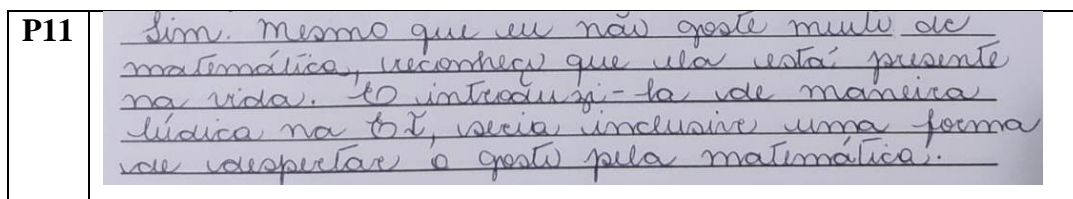 P11
Sim. Mesmo que eu não goste muito de
matemática, reconheço que ela está presente
na vida. E introduzi-la de maneira
lúdica na EI, seria inclusive uma forma
de despertar o gosto pela matemática.